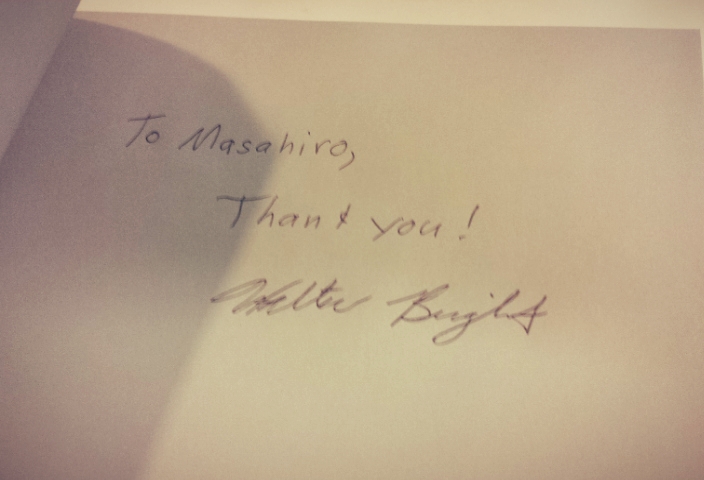 To Masahiro,
Thank you!
Walter Bright